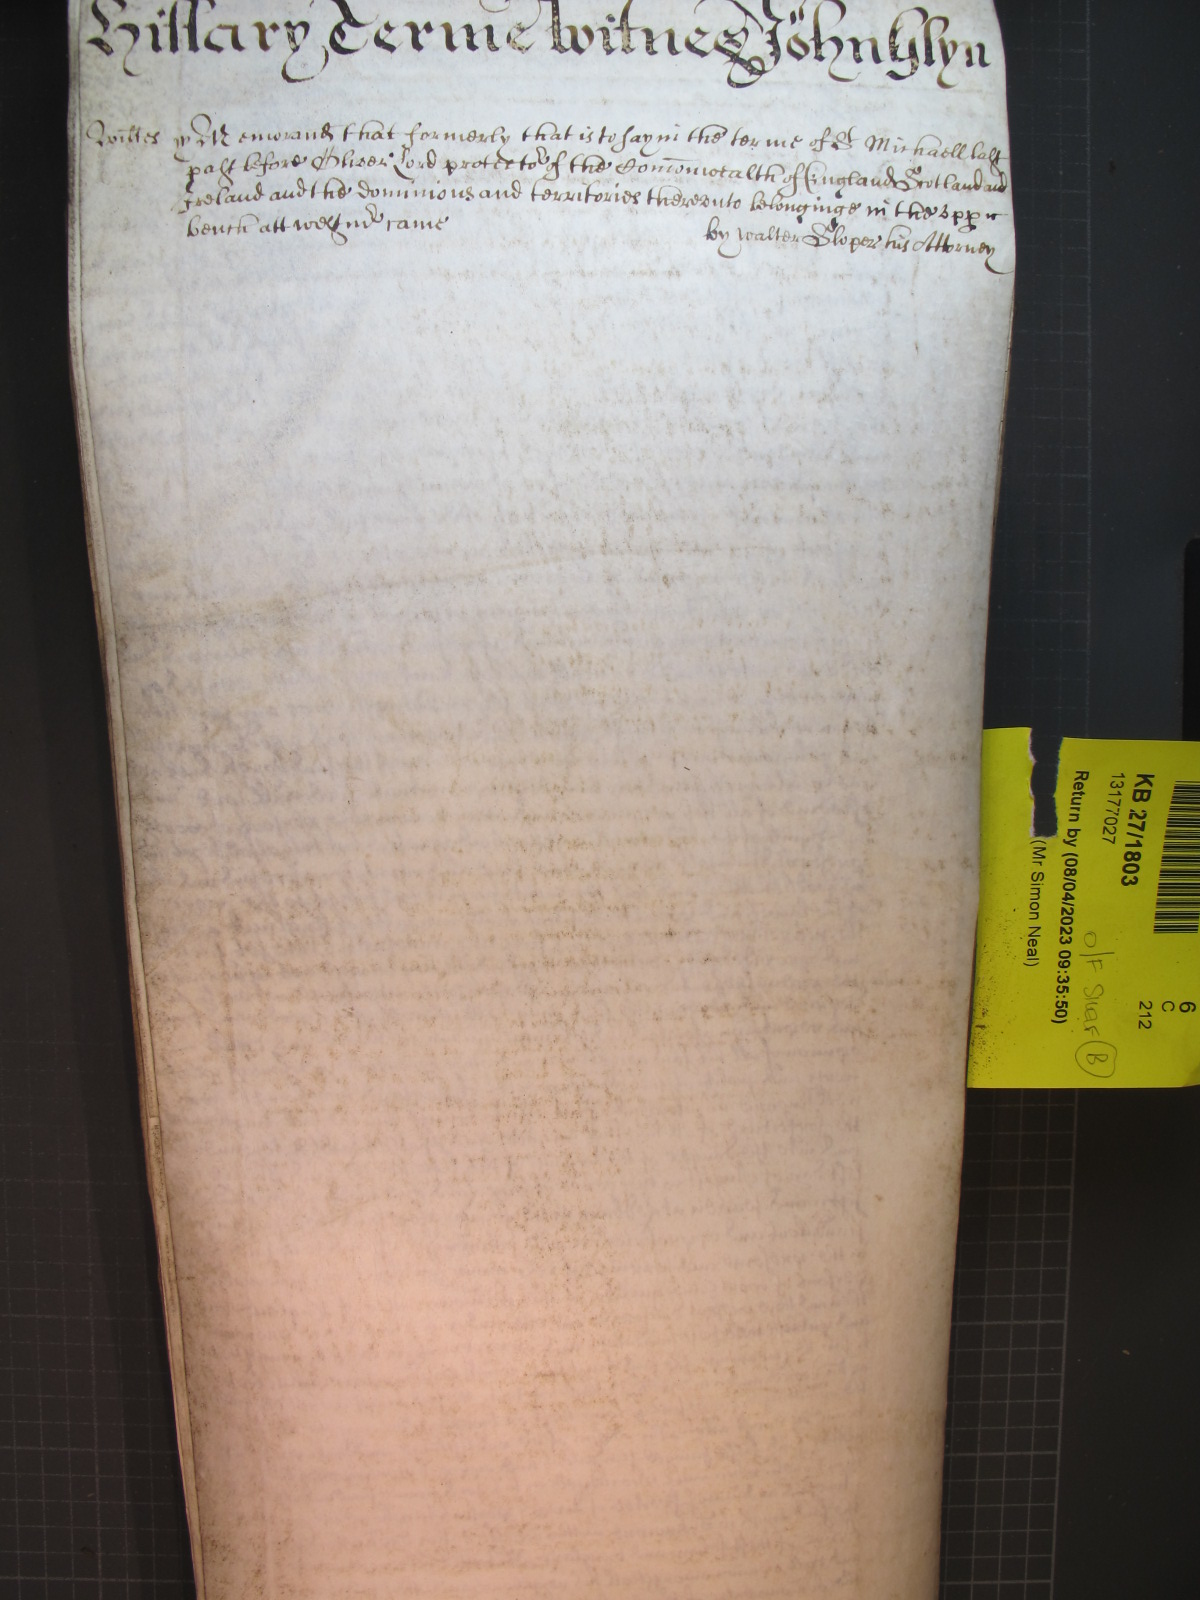 Hillary Terme Witnes John Glyn
Wiltes Memorand that formerly that is to say in the terme of St Michaell last
past before Oliver Lord protector of the Comonwealth of England Scotland and
Ireland and the dominions and territories thereunto belonginge in the upp
bench att westmr came by Walter Sloper his Attorney
KB 27/1803
13177027
Return by (08/04/2023 09:35:50)
(Mr Simon Neal)
6
C
212
O/F
B